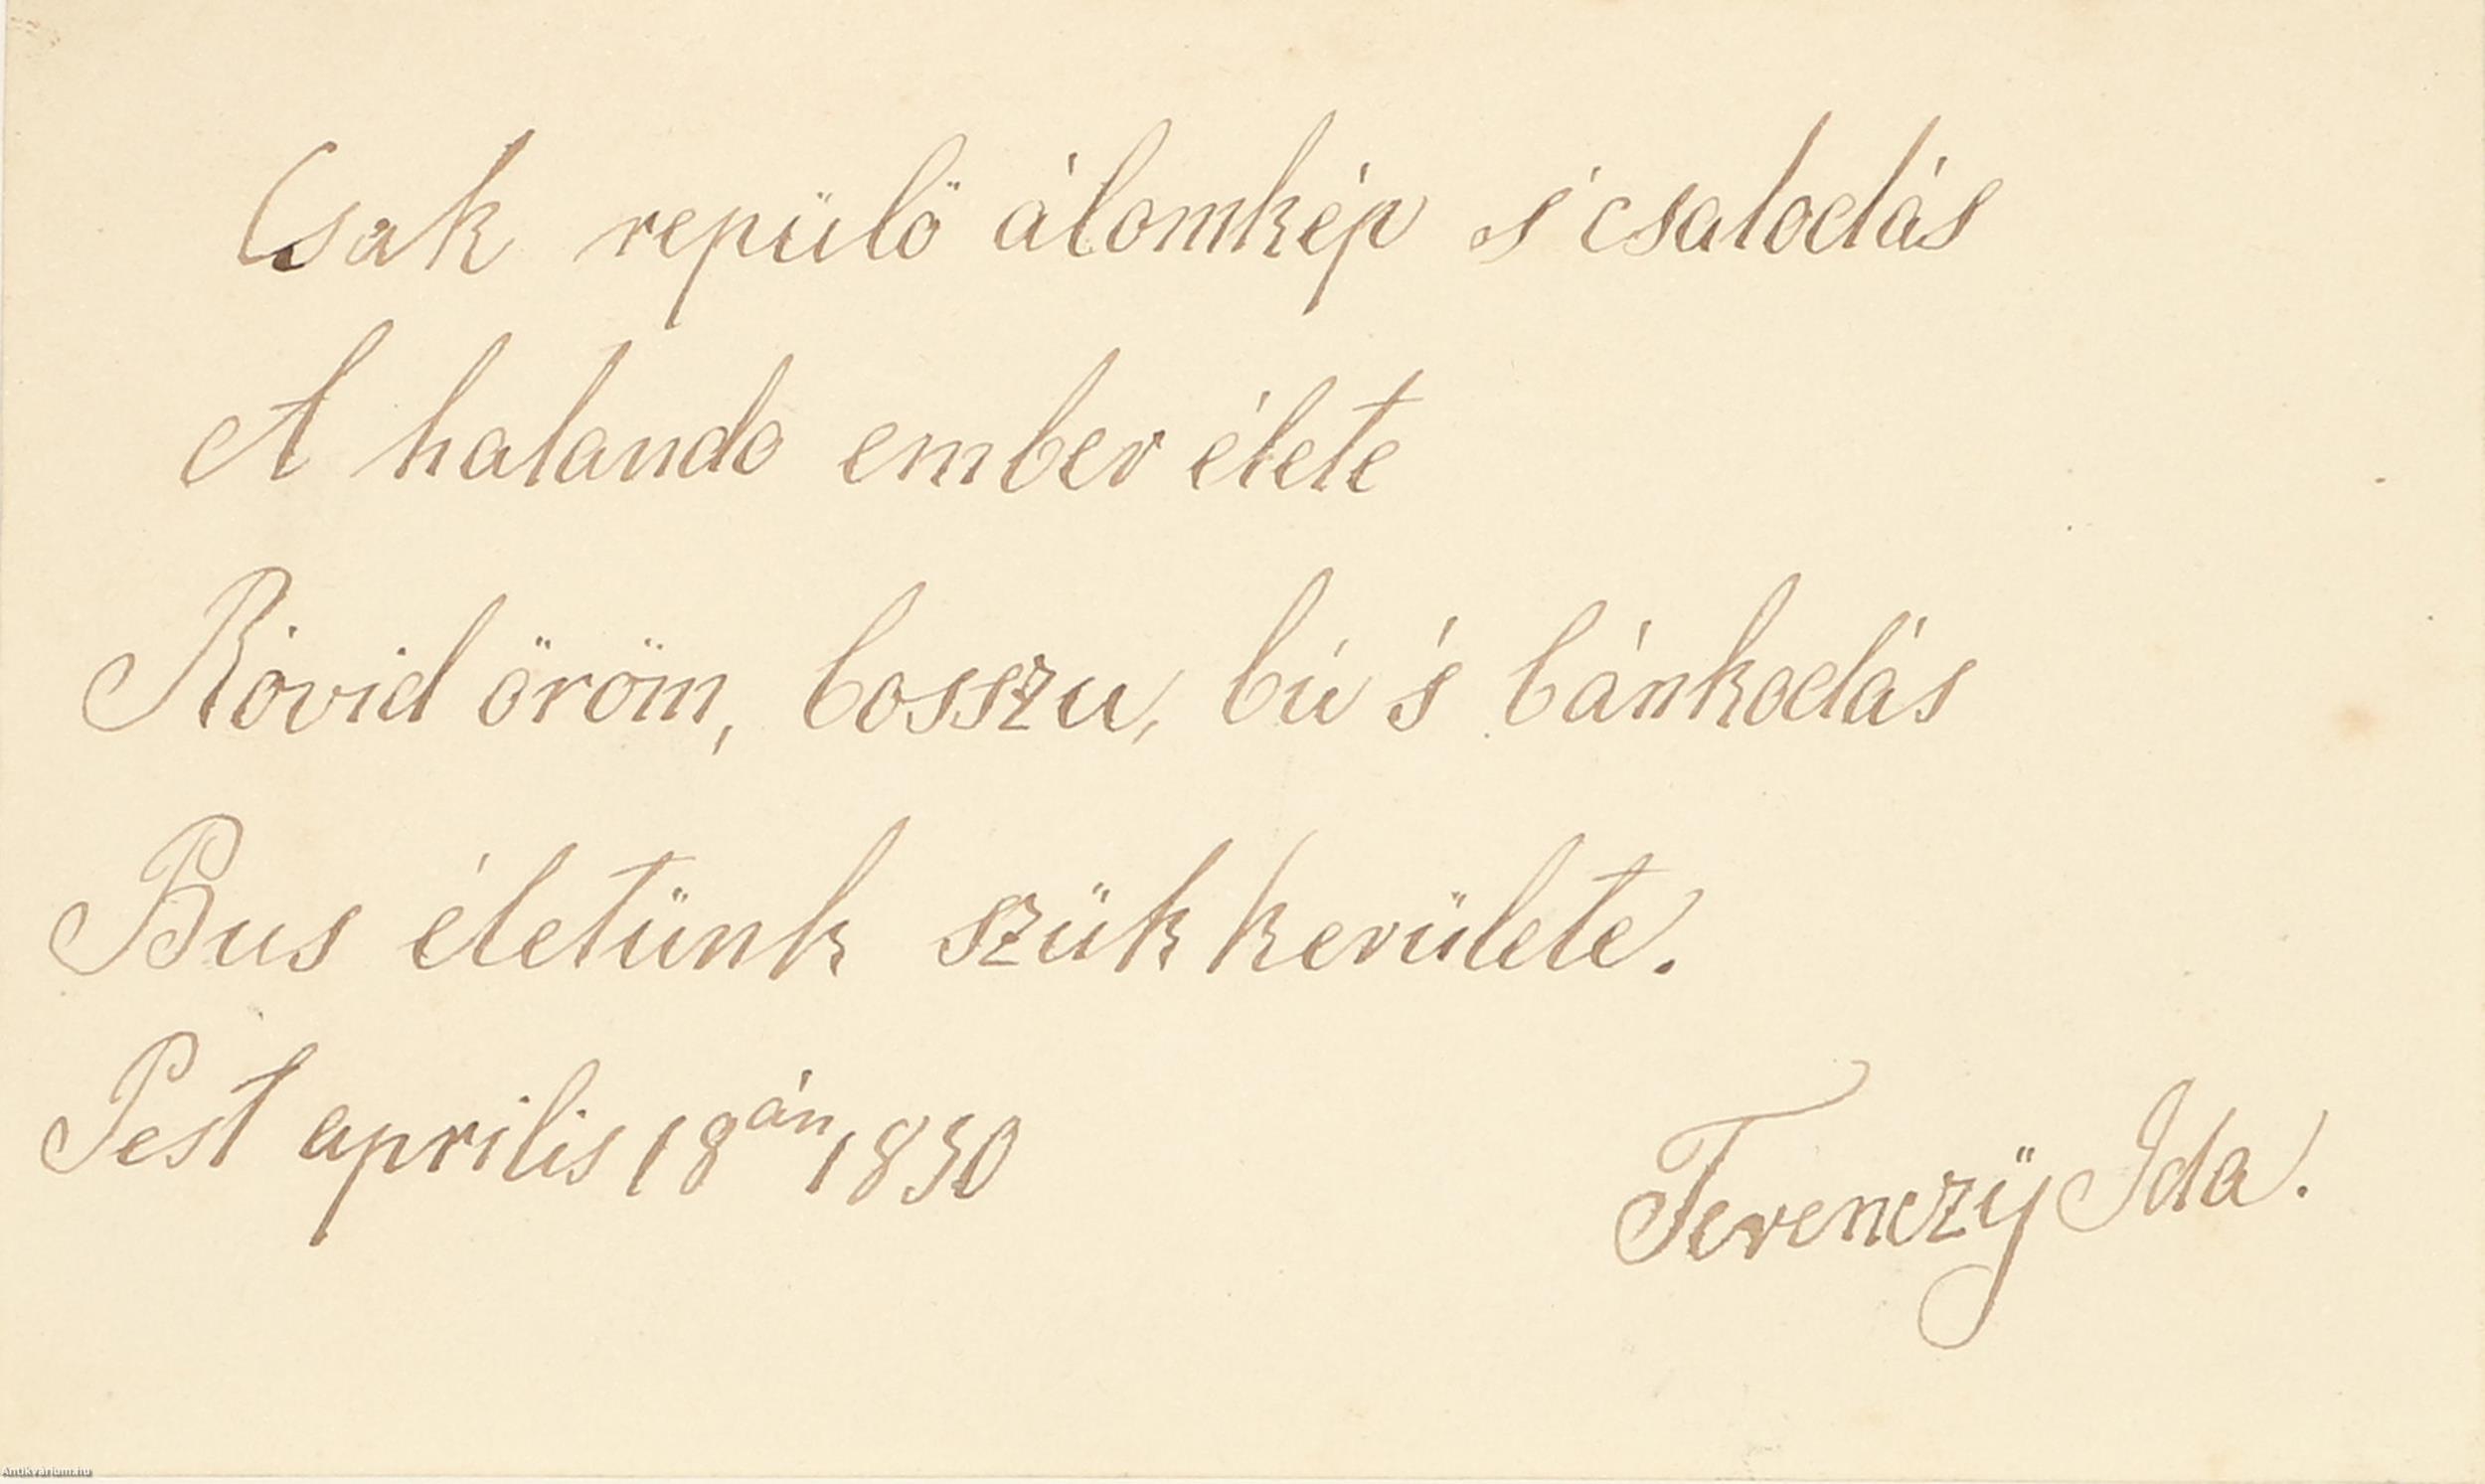 Csak repülö álomkép s' csalodás
A halando ember élete
Rövid öröm, bosszu, bú 's bánkodás
Bus életünk szük kerülete.
Pest aprilis 18án 1850
Ferenczÿ Ida.
Antikvárium.hu